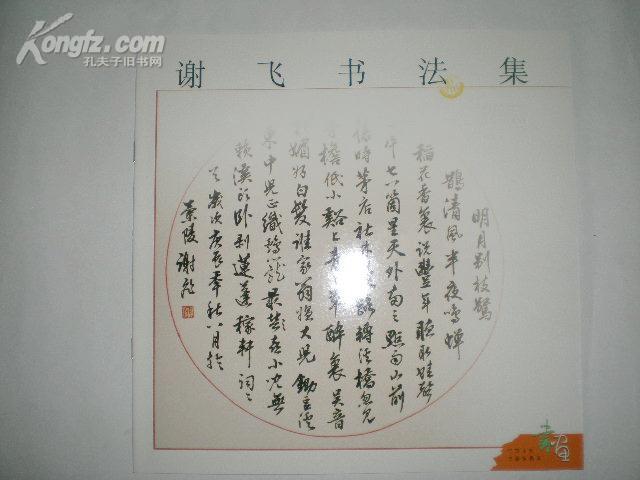 Kongfz.com
孔夫子旧书网
谢飞书法集
明月别枝惊
鹊清风半夜鸣蝉
稻花香里说丰年听取蛙声
七八个星天外两三点雨山前
时茅店社林路转溪桥忽见
檐低小溪上青草醉里吴音
媚好白发谁家翁媪大儿锄豆溪
东中儿正织鸡笼最喜小儿无
赖溪头卧剥莲蓬稼轩词二
岁次庚辰年秋八月於
景陵谢飞